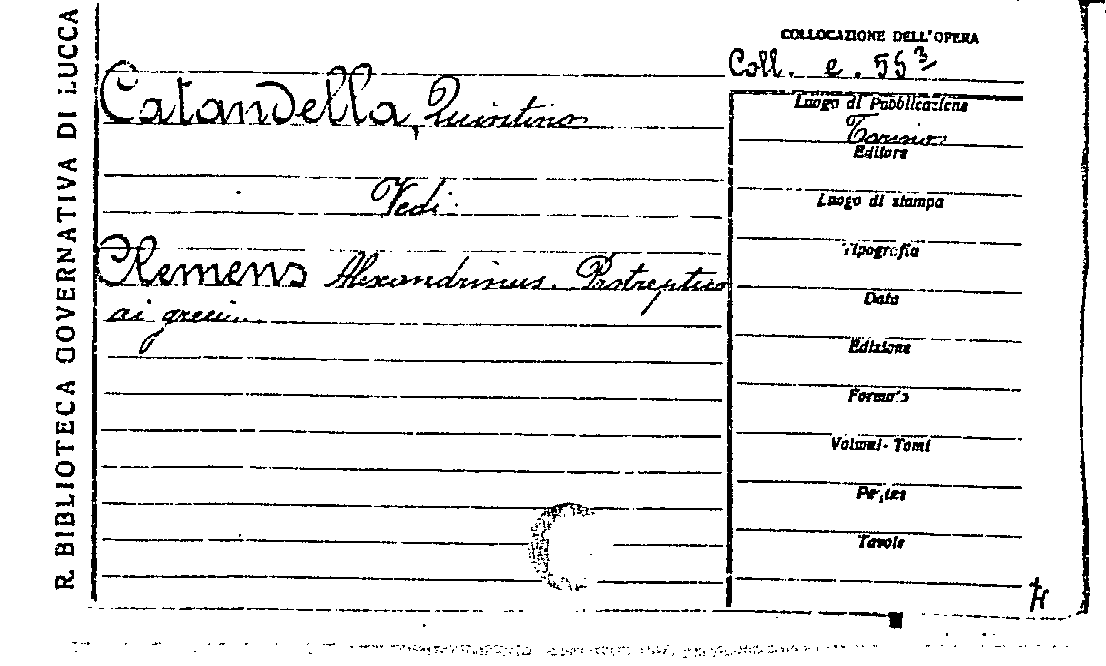 R. BIBLIOTECA GOVERNATIVA DI LUCCA
COLLOCAZIONE DELL'OPERA
Coll. e. 55³
Catandella, Quintino
Vedi.
Clemens Alexandrinus. Protreptico
ai greci.
Luogo di Pubblicazione
Torino
Editore
Luogo di stampa
Tipografia
Data
Edizione
Formato
Volumi - Tomi
Pagine
Tavole